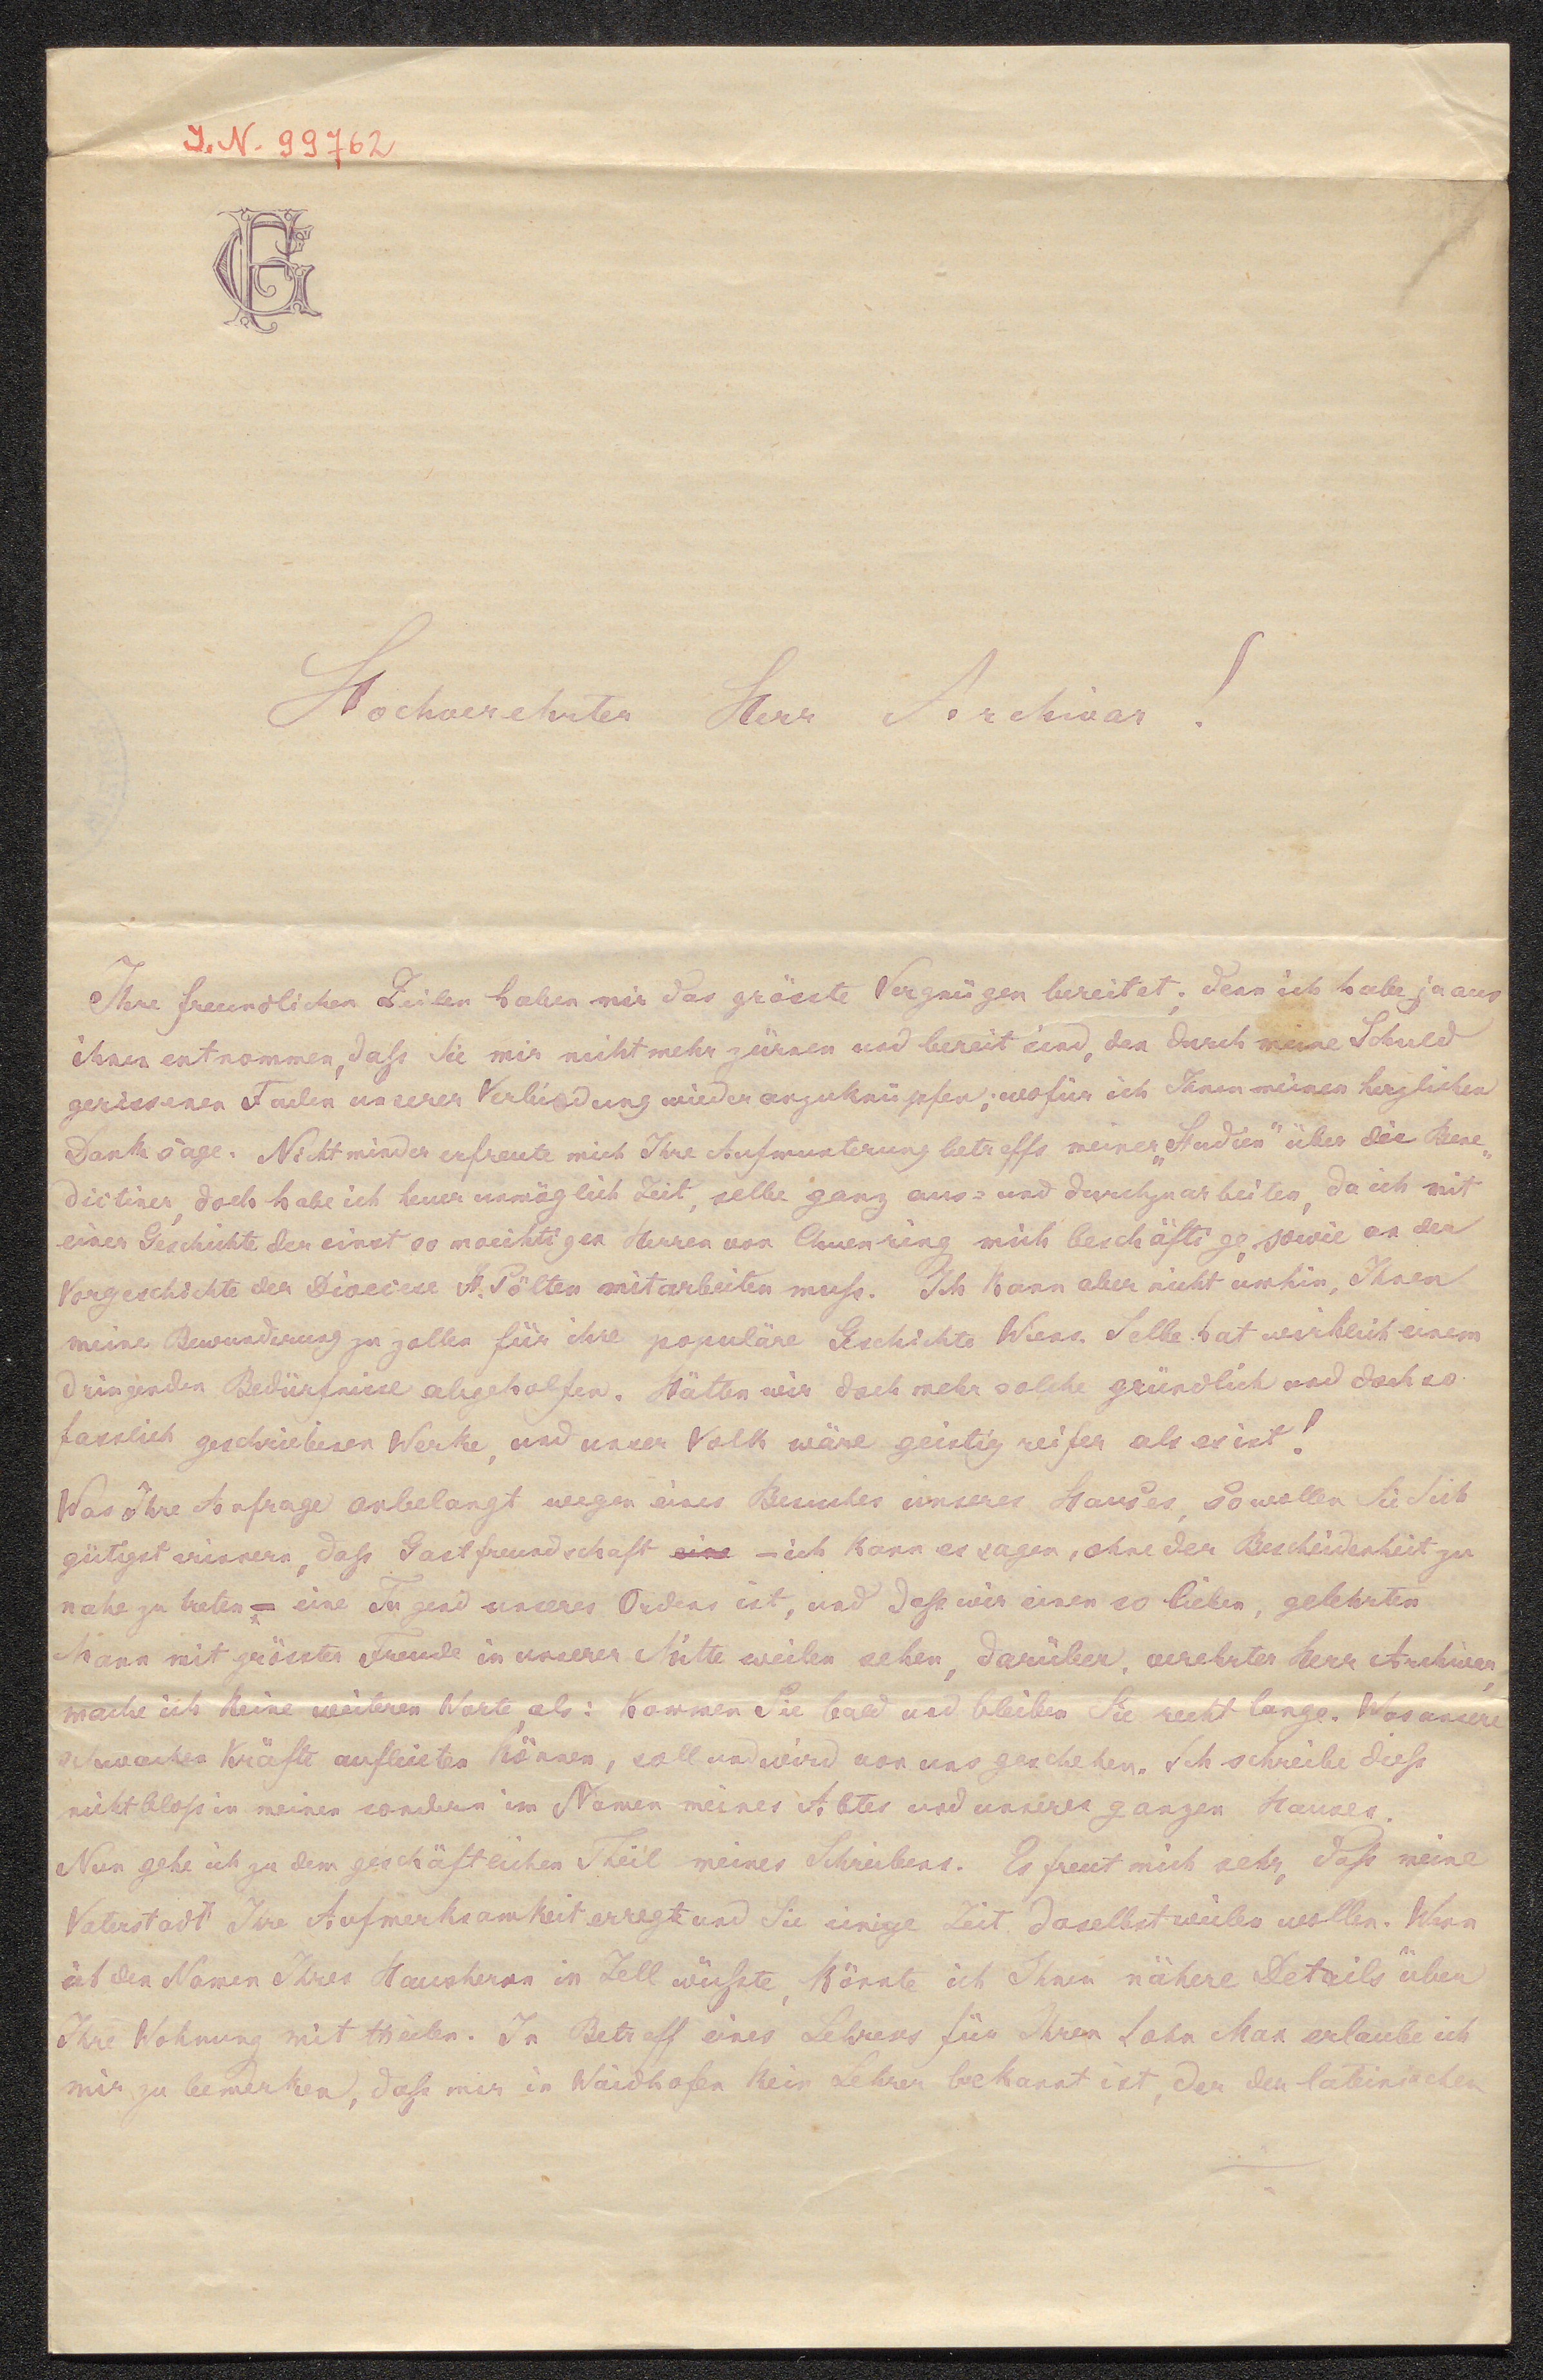 I. N. 99762
GF
Hochverehrter Herr Archivar!
Ihre freundlichen Zeilen haben mir das grösste Vergnügen bereitet; denn ich habe ja aus
ihnen entnommen, daß Sie mir nicht mehr zürnen und bereit sind, den durch meine Schuld
gerissenen Faden unserer Verbindung wieder anzuknüpfen; wofür ich Ihnen meinen herzlichen
Dank sage. Nicht minder erfreute mich Ihre Aufmunterung betreffs meiner „Studien" über die Bene„
dictiner, doch habe ich heuer unmöglich Zeit, selbe ganz aus= und durchzuarbeiten, da ich mit
einer Geschichte der einst so maechtigen Herren von Chuenring mich beschäftige, sowie an der
Vorgeschichte der Dioecese St. Pölten mitarbeiten muß. Ich kann aber nicht umhin, Ihnen
meine Bewunderung zu zollen für ihre populäre Geschichte Wiens. Selbe hat wirklich einem
dringenden Bedürfnisse abgeholfen. Hätten wir doch mehr solche gründlich und doch so
fasslich geschriebenen Werke, und unser Volk wäre geistig reifer als es ist!
Was Ihre Anfrage anbelangt wegen eines Besuches unseres Hauses, so wollen Sie Sich
gütigst erinnern, daß Gastfreundschaft eine – ich kann es sagen, ohne der Bescheidenheit zu
nahe zu treten – eine Tugend unseres Ordens ist, und daß wir einen so lieben, gelehrten
Mann mit grösster Freude in unserer Mitte weilen sehen, darüber, verehrter Herr Archivar,
mache ich keine weiteren Worte, als: Kommen Sie bald und bleiben Sie recht lange. Was unsere
schwachen Kräfte aufbieten können, soll und wird von uns geschehen. Ich schreibe dieß
nicht bloß in meinen sondern im Namen meines Abtes und unseres ganzen Hauses.
Nun gehe ich zu dem geschäftlichen Theil meines Schreibens. Es freut mich sehr, daß meine
Vaterstadt Ihre Aufmerksamkeit erregt und Sie einige Zeit daselbst weilen wollen. Wenn
ich den Namen Ihres Hausherrn in Zell wüßte, könnte ich Ihnen nähere Details über
Ihre Wohnung mittheilen. In Betreff eines Lehrers für Ihren Sohn Max erlaube ich
mir zu bemerken, daß mir in Waidhofen kein Lehrer bekannt ist, der der lateinischen